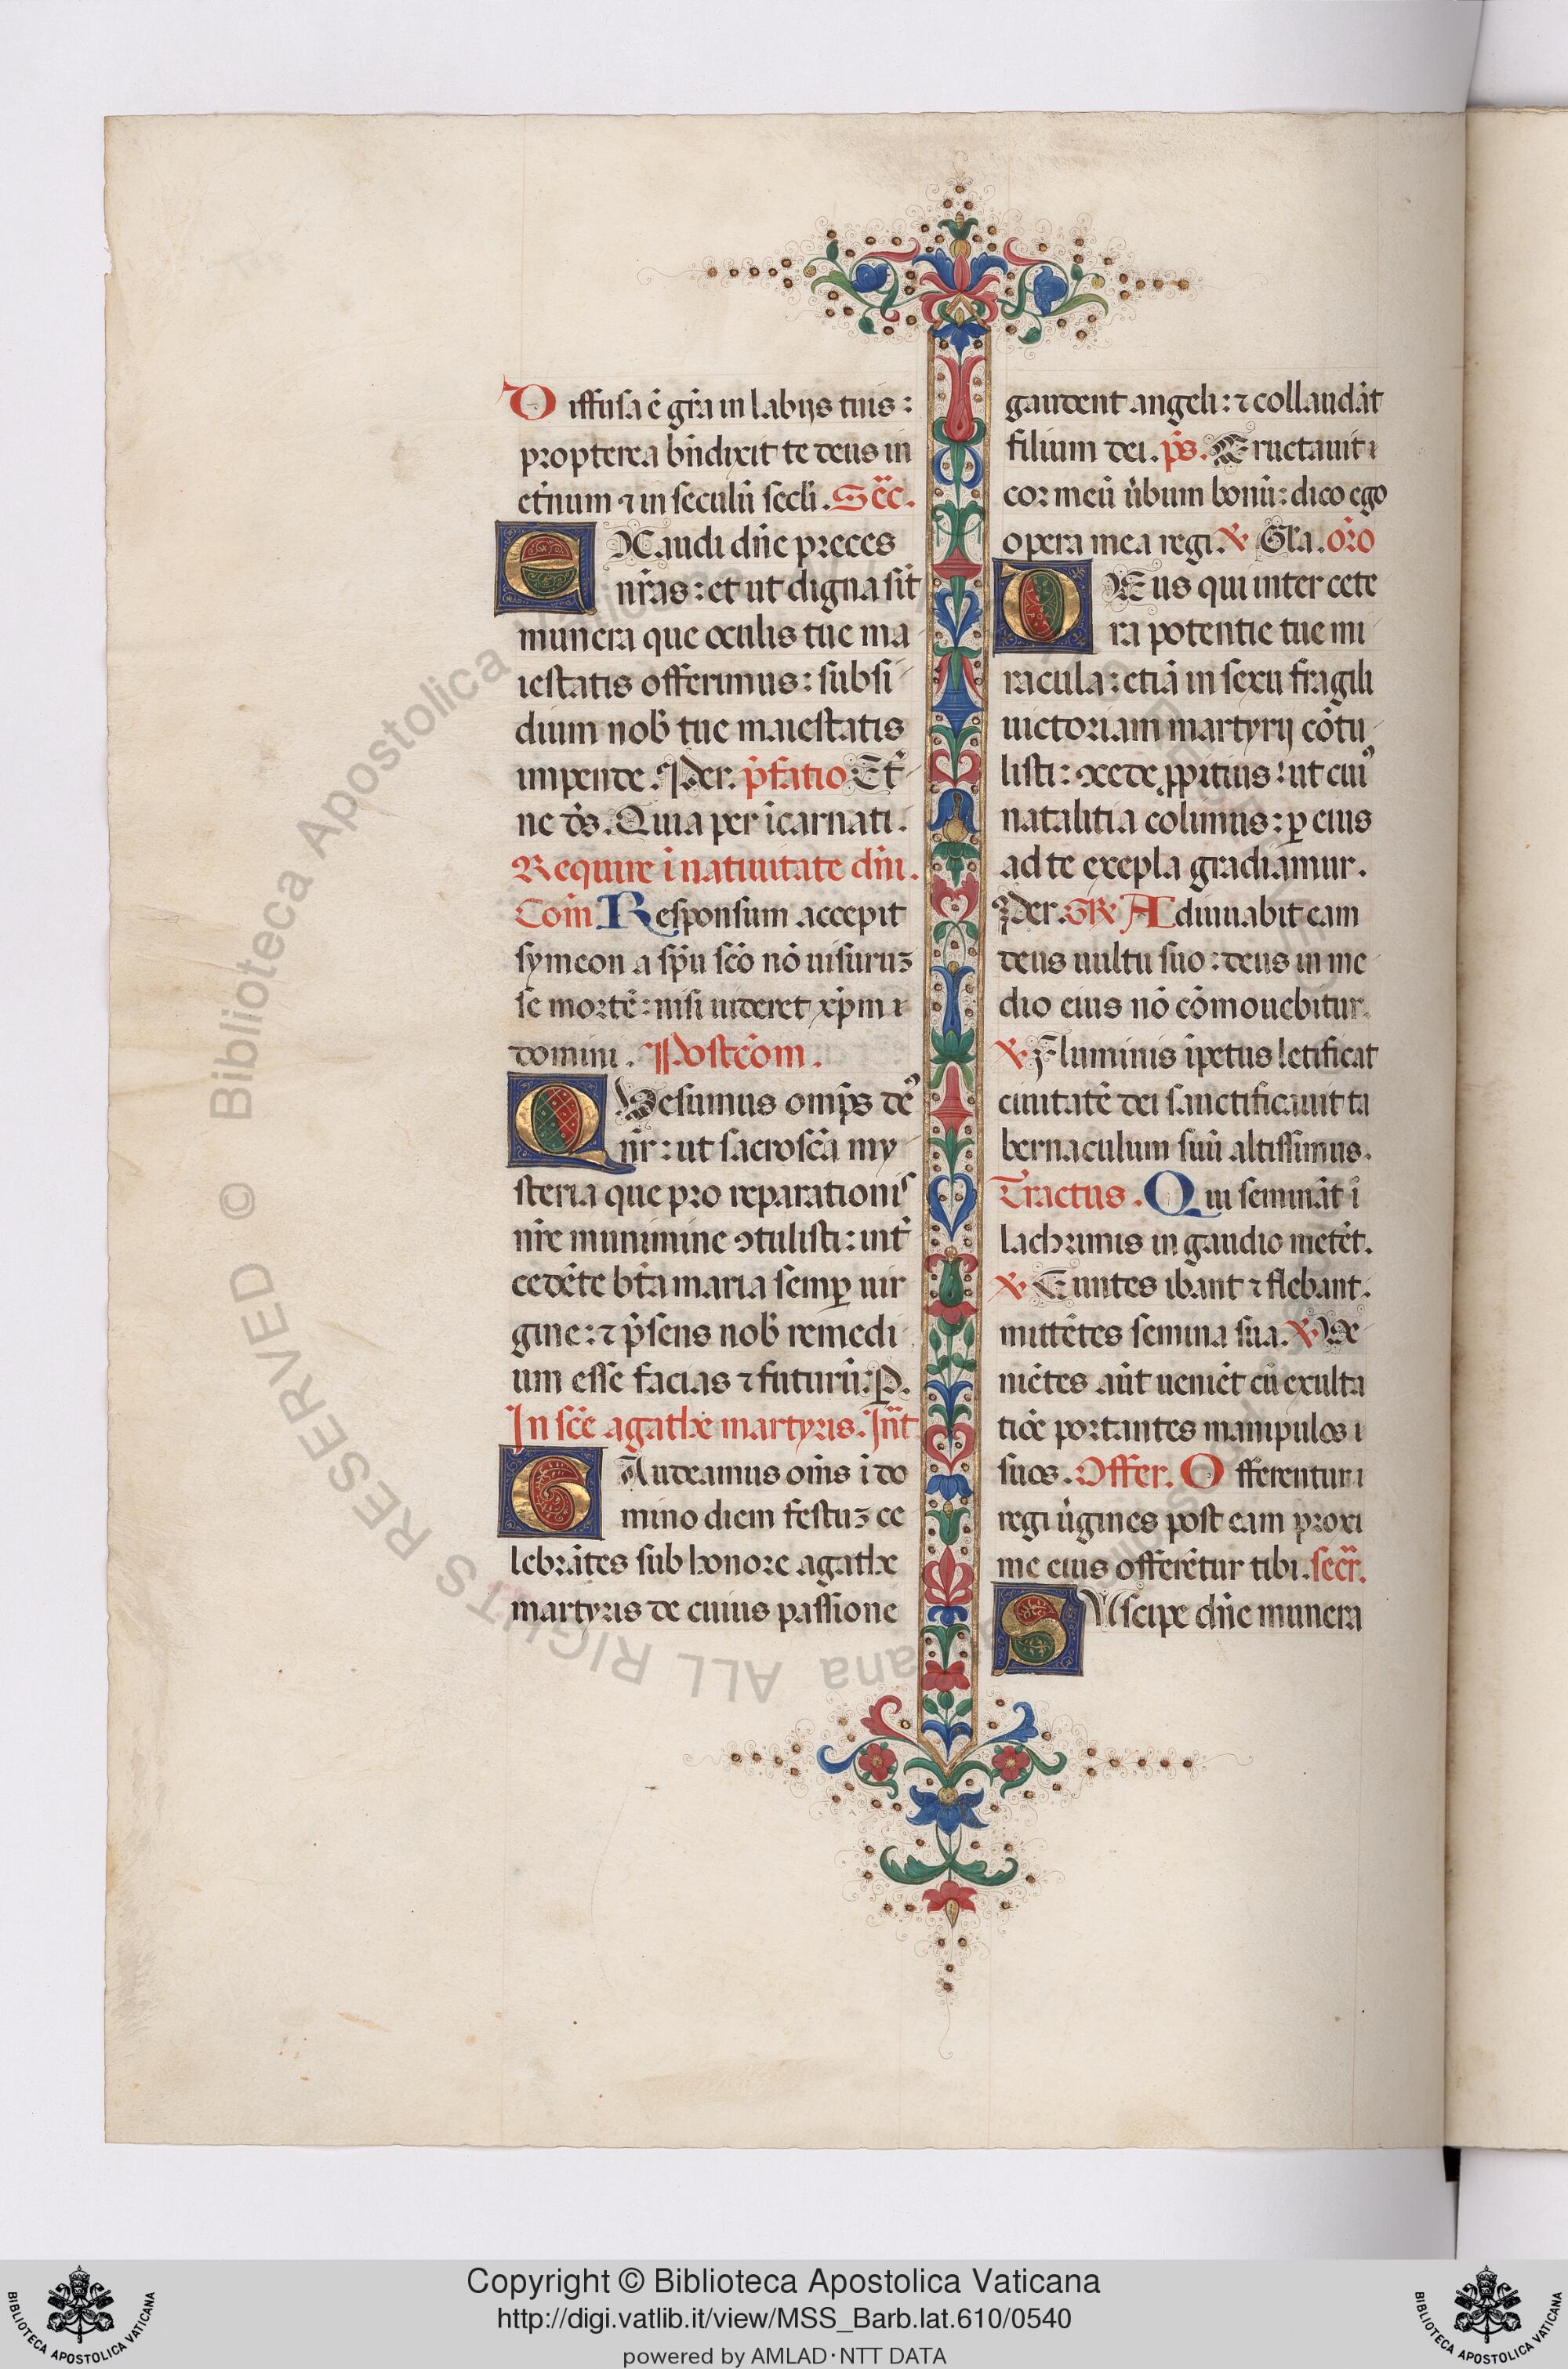 Diffusa ē gr̄a in labijs tuis:
propterea bn̄dixit te deus in
et̄num ⁊ in seculū secłi. Sēc.
EXaudi dn̄e preces
nr̄as: et ut digna sīt
munera que oculis tue ma
iestatis offerimus: subsi
dium nob̄ tue maiestatis
impende. Per. p̄fatio Et̄
ne ds̄. Quia per īcarnati.
Require ī natiuitate dn̄i.
Com̄ Responsum accepit
symeon a spū scō nō uisuruꝫ
se mortē: nisi uideret xp̄m
domini. Postcōm.
QVesumus omp̄s deꝰ
nr̄: ut sacroscā my
steria que pro reparationis
nr̄e munimine ꝯtulisti: int̄
cedēte bt̄a maria semꝑ uir
gine: ⁊ p̄sens nob̄ remedi
um esse facias ⁊ futurū. P.
In scē agathe martyris. Int̄
GAudeamus om̄s ī do
mino diem festuꝫ ce
lebrātes sub honore agathe
martyris de cuius passione
gaudent angeli: ⁊ collaudāt
filium dei. ps̄. Eructauit
cor meū ūbum bonū: dico ego
opera mea regi. ℣ Gła. or̄o
DEus qui inter cete
ra potentie tue mi
racula: etiā in sexu fragili
uictoriam martyrij cōtu
listi: ꝯcede ꝓpitius: ut eiuꝰ
natalitia colimus: ꝑ eius
ad te exepla gradiamur.
Per. GR Adiuuabit eam
deus uultu suo: deus in me
dio eius nō cōmouebitur.
℣ Fluminis īpetus letificat
ciuitatē dei sanctificauit ta
bernaculum suū altissimus.
Tractus. Qui semināt ī
lachrimis in gaudio metēt.
℣ Euntes ibant ⁊ flebant.
mittētes semina sua. ℣ Ve
niētes aūt ueniēt cū exulta
tiōe portantes manipulos
suos. Offer. Offerentur
regi ūgines post eam proxi
me eius offerētur tibi. secr̄.
SUscipe dn̄e munera
© Biblioteca Apostolica Vaticana ALL RIGHTS RESERVED
Copyright © Biblioteca Apostolica Vaticana
http://digi.vatlib.it/view/MSS_Barb.lat.610/0540
powered by AMLAD·NTT DATA
BIBLIOTECA APOSTOLICA VATICANA
BIBLIOTECA APOSTOLICA VATICANA